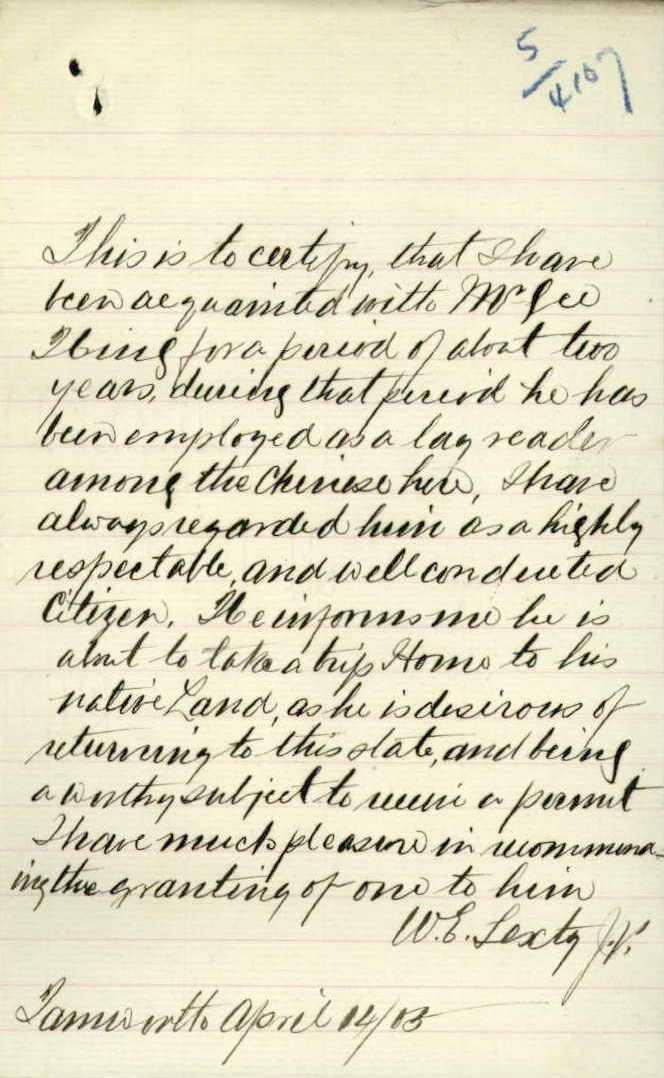 5/4107
This is to certify, that I have
been acquainted with Mr Gee
Hing for a period of about two
years, during that period he has
been employed as a lay reader
among the Chinese here, I have
always regarded him as a highly
respectable, and well conducted
Citizen. He informs me he is
about to take a trip Home to his
native Land, as he is desirous of
returning to this state, and being
a worthy subject to receive a permit
I have much pleasure in recommend-
ing the granting of one to him
W. E. Sexty J.P.
Tamworth April 14/03